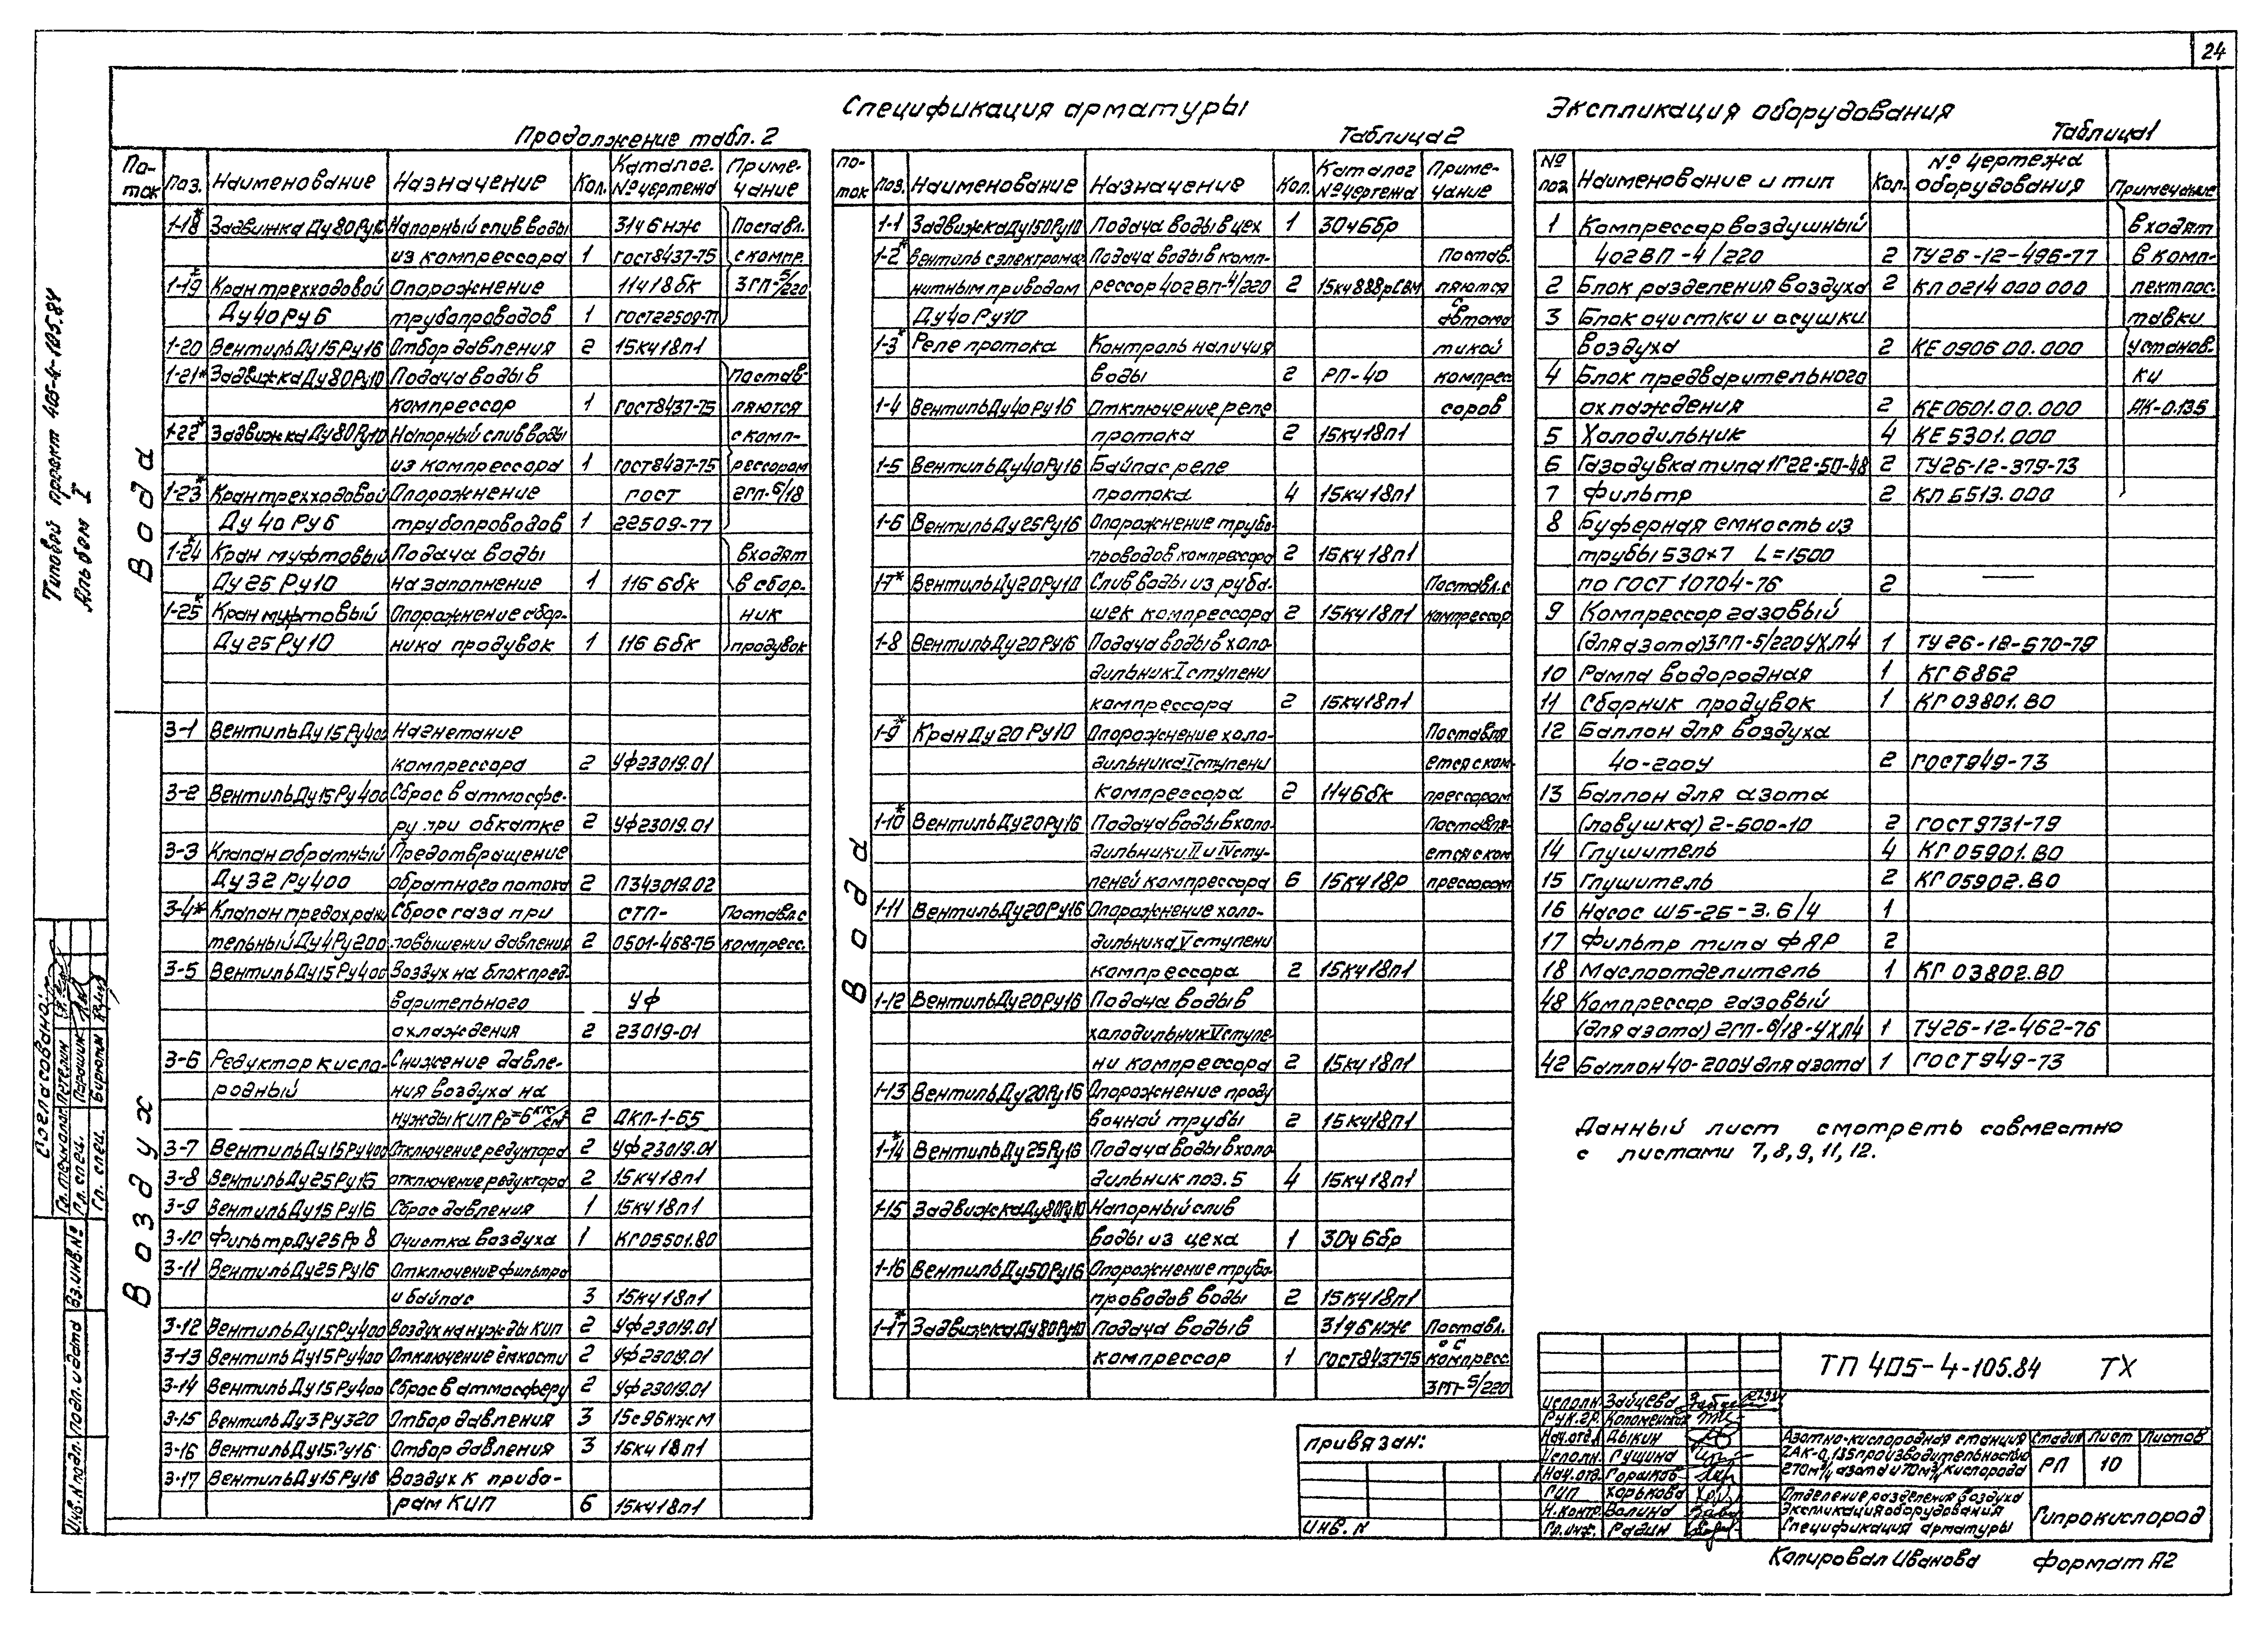 24
Спецификация арматуры
Экспликация оборудования
Продолжение табл. 2
По-ток Поз. Наименование Назначение Кол. Каталог. № чертежа Примечание
Вода
1-18* Задвижка Ду80Ру10 Напорный слив воды 31ч6нж Поставл.
из компрессора 1 ГОСТ8437-75 с компр.
1-19* Кран трехходовой Опорожнение 11ч18бк 3ГП-5/220
Ду40Ру6 трубопроводов 1 ГОСТ22509-77
1-20 Вентиль Ду15Ру16 Отбор давления 2 15кч18п1
1-21* Задвижка Ду80Ру10 Подача воды в Постав-
компрессор 1 ГОСТ8437-75 ляются
1-22* Задвижка Ду80Ру10 Напорный слив воды с комп-
из компрессора 1 ГОСТ8437-75 рессором
1-23* Кран трехходовой Опорожнение ГОСТ 2ГП-6/18
Ду40Ру6 трубопроводов 1 22509-77
1-24* Кран муфтовый Подача воды входят
Ду25Ру10 на заполнение 1 11б6бк в сбор-
1-25* Кран муфтовый Опорожнение сбор- ник
Ду25Ру10 ника продувок 1 11б6бк продувок
Воздух
3-1 Вентиль Ду15Ру400 Нагнетание
компрессора 2 УФ23019.01
3-2 Вентиль Ду15Ру400 Сброс в атмосфе-
ру при обкатке 2 УФ23019.01
3-3 Клапан обратный Предотвращение
Ду32Ру400 обратного потока 2 ПЗ43019.02
3-4* Клапан предохрани Сброс газа при СТП- Поставл.с
тельный Ду4Ру200 повышении давления 2 0501-468-75 компресс.
3-5 Вентиль Ду15Ру400 Воздух на блок пред-
варительного УФ
охлаждения 2 23019-01
3-6 Редуктор кисло- Снижение давле-
родный ния воздуха на
нужды КИП Рр=6кгс/см² 2 ДКП-1-65
3-7 Вентиль Ду15Ру400 Отключение редуктора 2 УФ23019.01
3-8 Вентиль Ду25Ру16 отключение редуктора 2 15кч18п1
3-9 Вентиль Ду15Ру16 Сброс давления 1 15кч18п1
3-10 Фильтр Ду25Рр8 Очистка воздуха 1 КГ05501.ВО
3-11 Вентиль Ду25Ру16 Отключение фильтра
и байпас 3 15кч18п1
3-12 Вентиль Ду15Ру400 Воздух на нужды КИП 2 УФ23019.01
3-13 Вентиль Ду15Ру400 Отключение ёмкости 2 УФ23019.01
3-14 Вентиль Ду15Ру400 Сброс в атмосферу 2 УФ23019.01
3-15 Вентиль Ду3Ру320 Отбор давления 3 15с96нжМ
3-16 Вентиль Ду15Ру16 Отбор давления 3 15кч18п1
3-17 Вентиль Ду15Ру16 Воздух к прибо-
рам КИП 6 15кч18п1
Таблица 2
По-ток Поз. Наименование Назначение Кол. Каталог № чертежа Примечание
Вода
1-1 Задвижка Ду150Ру10 Подача воды в цех 1 30ч6бр
1-2* Вентиль с электромаг- Подача воды в комп- Постав-
нитным приводом рессор 402ВП-4/220 2 15кч888рСВМ ляются
Ду40Ру10 с автома
1-3* Реле протока Контроль наличия тикой
воды 2 РП-40 компрес
1-4 Вентиль Ду40Ру16 Отключение реле соров
протока 2 15кч18п1
1-5 Вентиль Ду40Ру16 Байпас реле
протока 4 15кч18п1
1-6 Вентиль Ду25Ру16 Опорожнение трубо-
проводов компрессора 2 15кч18п1
1-7* Вентиль Ду20Ру10 Слив воды из руба- Поставл.с
шек компрессора 2 15кч18п1 компрессор
1-8 Вентиль Ду20Ру16 Подача воды в холо-
дильник I ступени
компрессора 2 15кч18п1
1-9* Кран Ду20Ру10 Опорожнение холо- Поставля
дильника I ступени ется с ком-
компрессора 2 11ч6бк прессором
1-10* Вентиль Ду20Ру16 Подача воды в холо- Поставля-
дильники II и IV сту- ется с ком
пеней компрессора 6 15кч18р прессором
1-11 Вентиль Ду20Ру16 Опорожнение холо-
дильника V ступени
компрессора 2 15кч18п1
1-12 Вентиль Ду20Ру16 Подача воды в
холодильник V ступе-
ни компрессора 2 15кч18п1
1-13 Вентиль Ду20Ру16 Опорожнение проду
вочной трубы 2 15кч18п1
1-14* Вентиль Ду25Ру16 Подача воды в холо-
дильник поз.5 4 15кч18п1
1-15 Задвижка Ду80Ру10 Напорный слив
воды из цеха 1 30ч6бр
1-16 Вентиль Ду50Ру16 Опорожнение трубо-
проводов воды 2 15кч18п1
1-17* Задвижка Ду80Ру10 Подача воды в 31ч6нж Поставл.
компрессор 1 ГОСТ8437-75 с компресс.
3ГП-5/220
Таблица 1
№ поз Наименование и тип Кол. № чертежа оборудования Примечание
1 Компрессор воздушный входят
402ВП-4/220 2 ТУ26-12-496-77 в комп-
2 Блок разделения воздуха 2 КЛ0214 000 000 лект пос.
3 Блок очистки и осушки тавки
воздуха 2 КЕ0906 00.000 установ-
4 Блок предварительного ки
охлаждения 2 КЕ0601.00.000 АК-0.135
5 Холодильник 4 КЕ5301.000
6 Газодувка типа 1Г22-50-4В 2 ТУ26-12-379-73
7 Фильтр 2 КЛ5513.000
8 Буферная емкость из
трубы 530×7 L=1500
по ГОСТ 10704-76 2 —
9 Компрессор газовый
(для азота) 3ГП-5/220УХЛ4 1 ТУ26-12-570-79
10 Рампа водородная 1 КГ6862
11 Сборник продувок 1 КГ03801.ВО
12 Баллон для воздуха
40-200У 2 ГОСТ949-73
13 Баллон для азота
(ловушка) 2-500-10 2 ГОСТ9731-79
14 Глушитель 4 КГ05901.ВО
15 Глушитель 2 КГ05902.ВО
16 Насос Ш5-25-3.6/4 1
17 Фильтр типа ФЯР 2
18 Маслоотделитель 1 КГ03802.ВО
48 Компрессор газовый
(для азота) 2ГП-6/18-УХЛ4 1 ТУ26-12-462-76
42 Баллон 40-200У для азота 1 ГОСТ949-73
Данный лист смотреть совместно
с листами 7, 8, 9, 11, 12.
Типовой проект 405-4-105.84
Альбом I
Согласовано:
Гл. технолог Потелин
Гл. спец.
Гл. спец. Бирюлин
Инв.№ подл. Подп. и дата Вз.инв.№
Привязан:
Инв. N
ТП 405-4-105.84 ТХ
Исполн. Зайцева
Рук.гр. Коломенская
Нач.отд. Дыкин
Исполн. Гущина
Нач.отд. Горшков
ГИП Харькова
Н.контр. Волина
Гл.инж. Радин
Азотно-кислородная станция
2АК-0,135 производительностью
270м³/ч азота и 70м³/ч кислорода
Стадия Лист Листов
РП 10
Отделение разделения воздуха
Экспликация оборудования
Спецификация арматуры
Гипрокислород
Копировал Иванова Формат А2